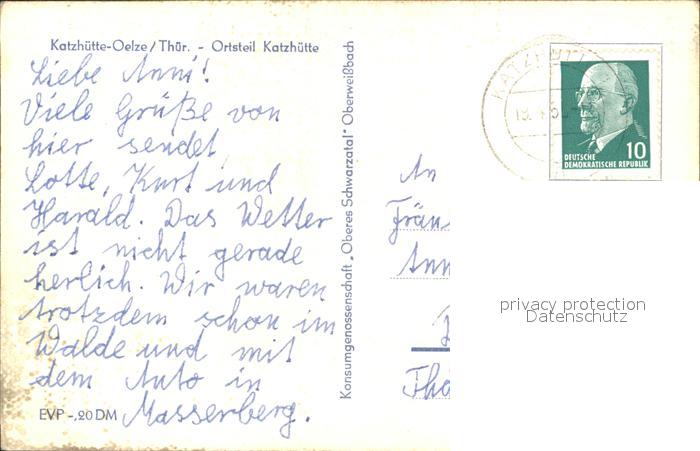 Katzhütte-Oelze/Thür. - Ortsteil Katzhütte
Liebe Anni!
Viele Grüße von
hier sendet
Lotte, Kurt und
Harald. Das Wetter
ist nicht gerade
herlich. Wir waren
trotzdem schon im
Walde und mit
dem Auto in
Masserberg.
EVP -,20 DM
Konsumgenossenschaft „Oberes Schwarzatal" Oberweißbach
KATZHÜTT
DEUTSCHE
DEMOKRATISCHE REPUBLIK
10
An
Fräu
Ann
Tho
privacy protection
Datenschutz